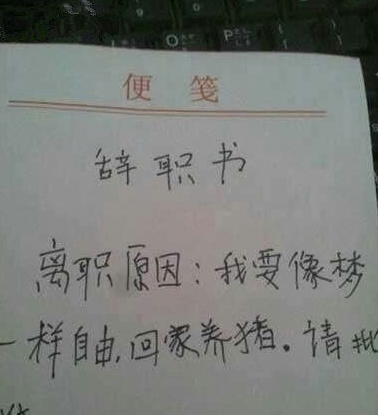 便笺
辞职书
离职原因：我要像梦
一样自由，回家养猪。请批